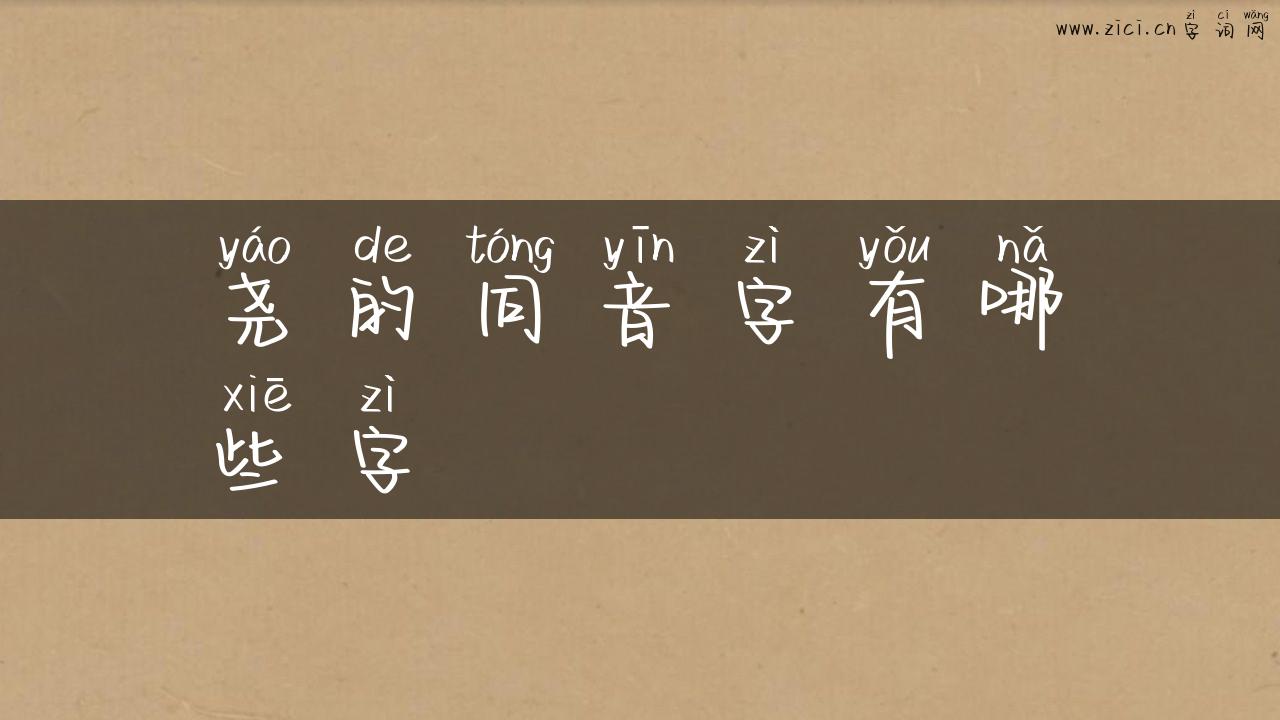 zì cí wǎng
www.zici.cn 字 词 网
yáo de tóng yīn zì yǒu nǎ
尧 的 同 音 字 有 哪
xiē zì
些 字